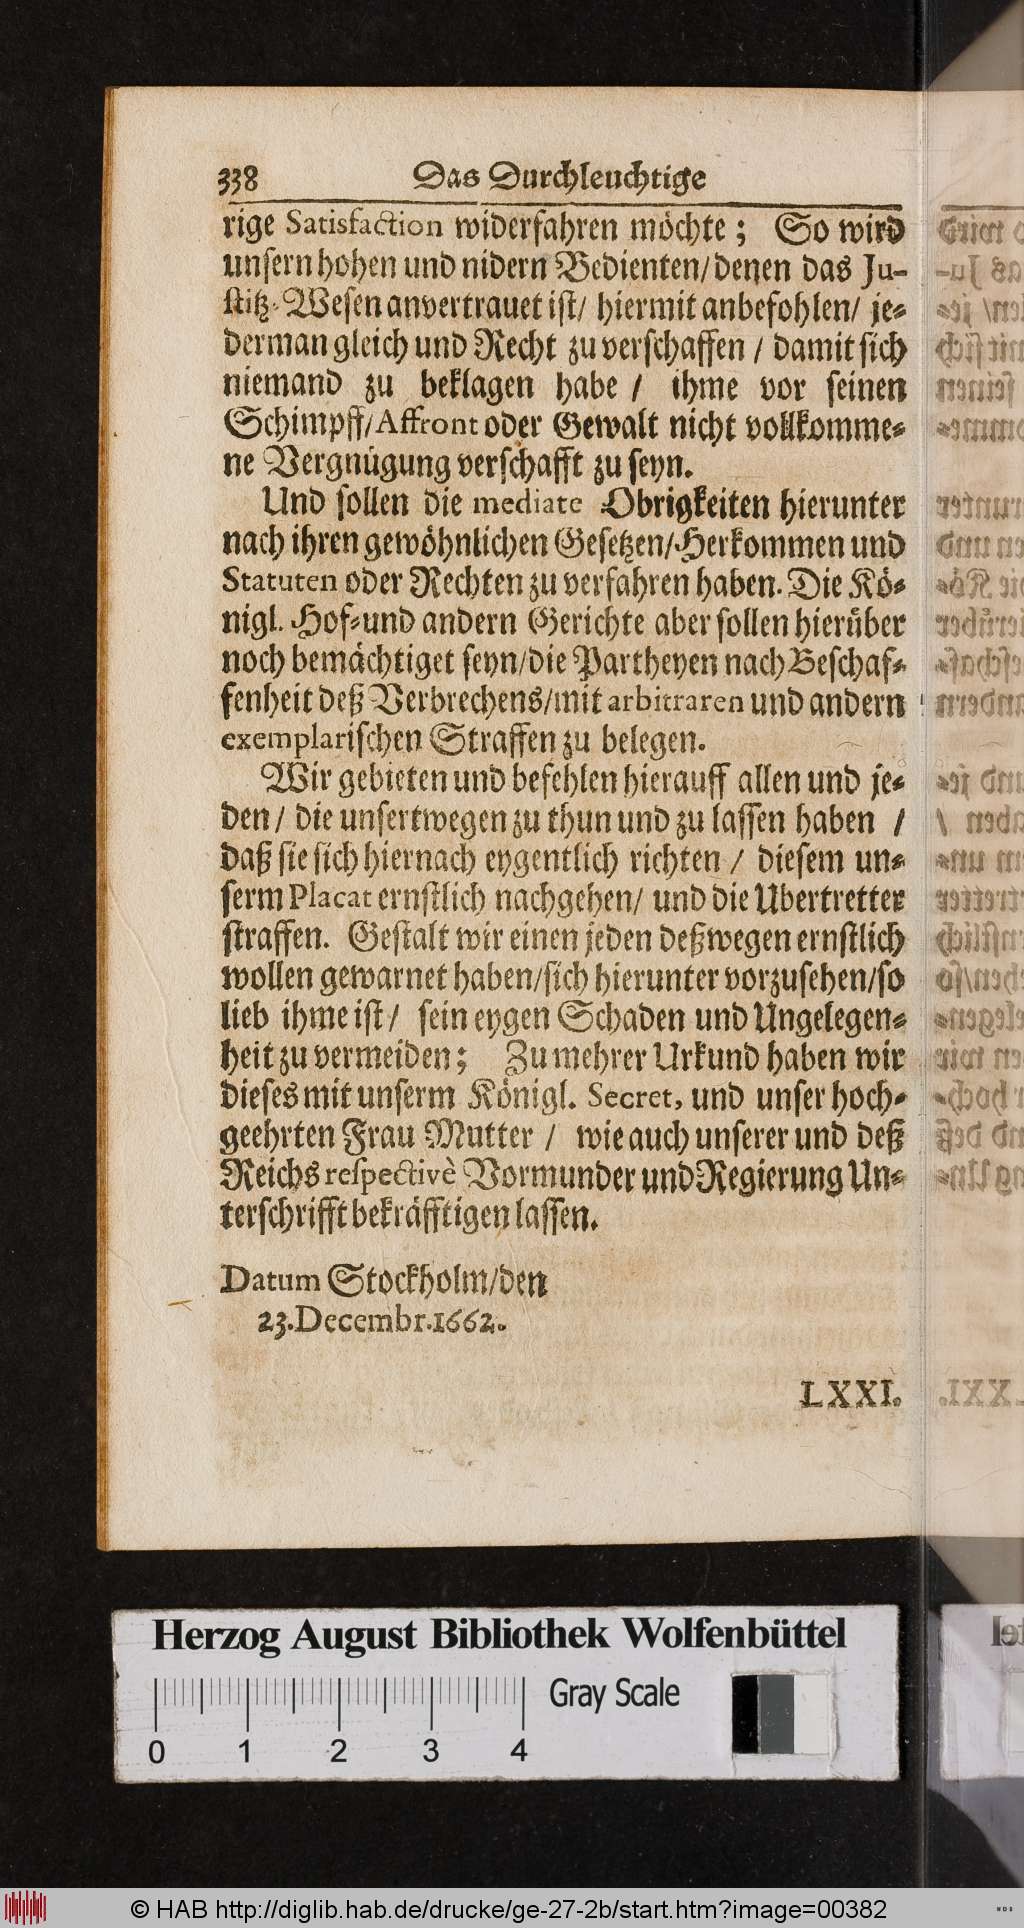 338 Das Durchleuchtige
rige Satisfaction widerfahren möchte; So wird
unsern hohen und nidern Bedienten/ denen das Ju-
stitz-Wesen anvertrauet ist/ hiermit anbefohlen/ je-
derman gleich und Recht zu verschaffen / damit sich
niemand zu beklagen habe / ihme vor seinen
Schimpff/ Affront oder Gewalt nicht vollkomme-
ne Vergnügung verschafft zu seyn.
Und sollen die mediate Obrigkeiten hierunter
nach ihren gewöhnlichen Gesetzen/ Herkommen und
Statuten oder Rechten zu verfahren haben. Die Kö-
nigl. Hof- und andern Gerichte aber sollen hierüber
noch bemächtiget seyn/ die Partheyen nach Beschaf-
fenheit deß Verbrechens/ mit arbitraren und andern
exemplarischen Straffen zu belegen.
Wir gebieten und befehlen hierauff allen und je-
den/ die unsertwegen zu thun und zu lassen haben /
daß sie sich hiernach eygentlich richten / diesem un-
serm Placat ernstlich nachgehen/ und die Ubertretter
straffen. Gestalt wir einen jeden deßwegen ernstlich
wollen gewarnet haben/ sich hierunter vorzusehen/ so
lieb ihme ist/ sein eygen Schaden und Ungelegen-
heit zu vermeiden; Zu mehrer Urkund haben wir
dieses mit unserm Königl. Secret, und unser hoch-
geehrten Frau Mutter / wie auch unserer und deß
Reichs respectivè Vormunder und Regierung Un-
terschrifft bekräfftigen lassen.
Datum Stockholm/ den
23. Decembr. 1662.
LXXI.
Herzog August Bibliothek Wolfenbüttel
Gray Scale
0 1 2 3 4
© HAB http://diglib.hab.de/drucke/ge-27-2b/start.htm?image=00382